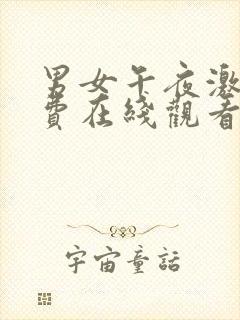 男女午夜激
費在綫觀看
宇宙童話